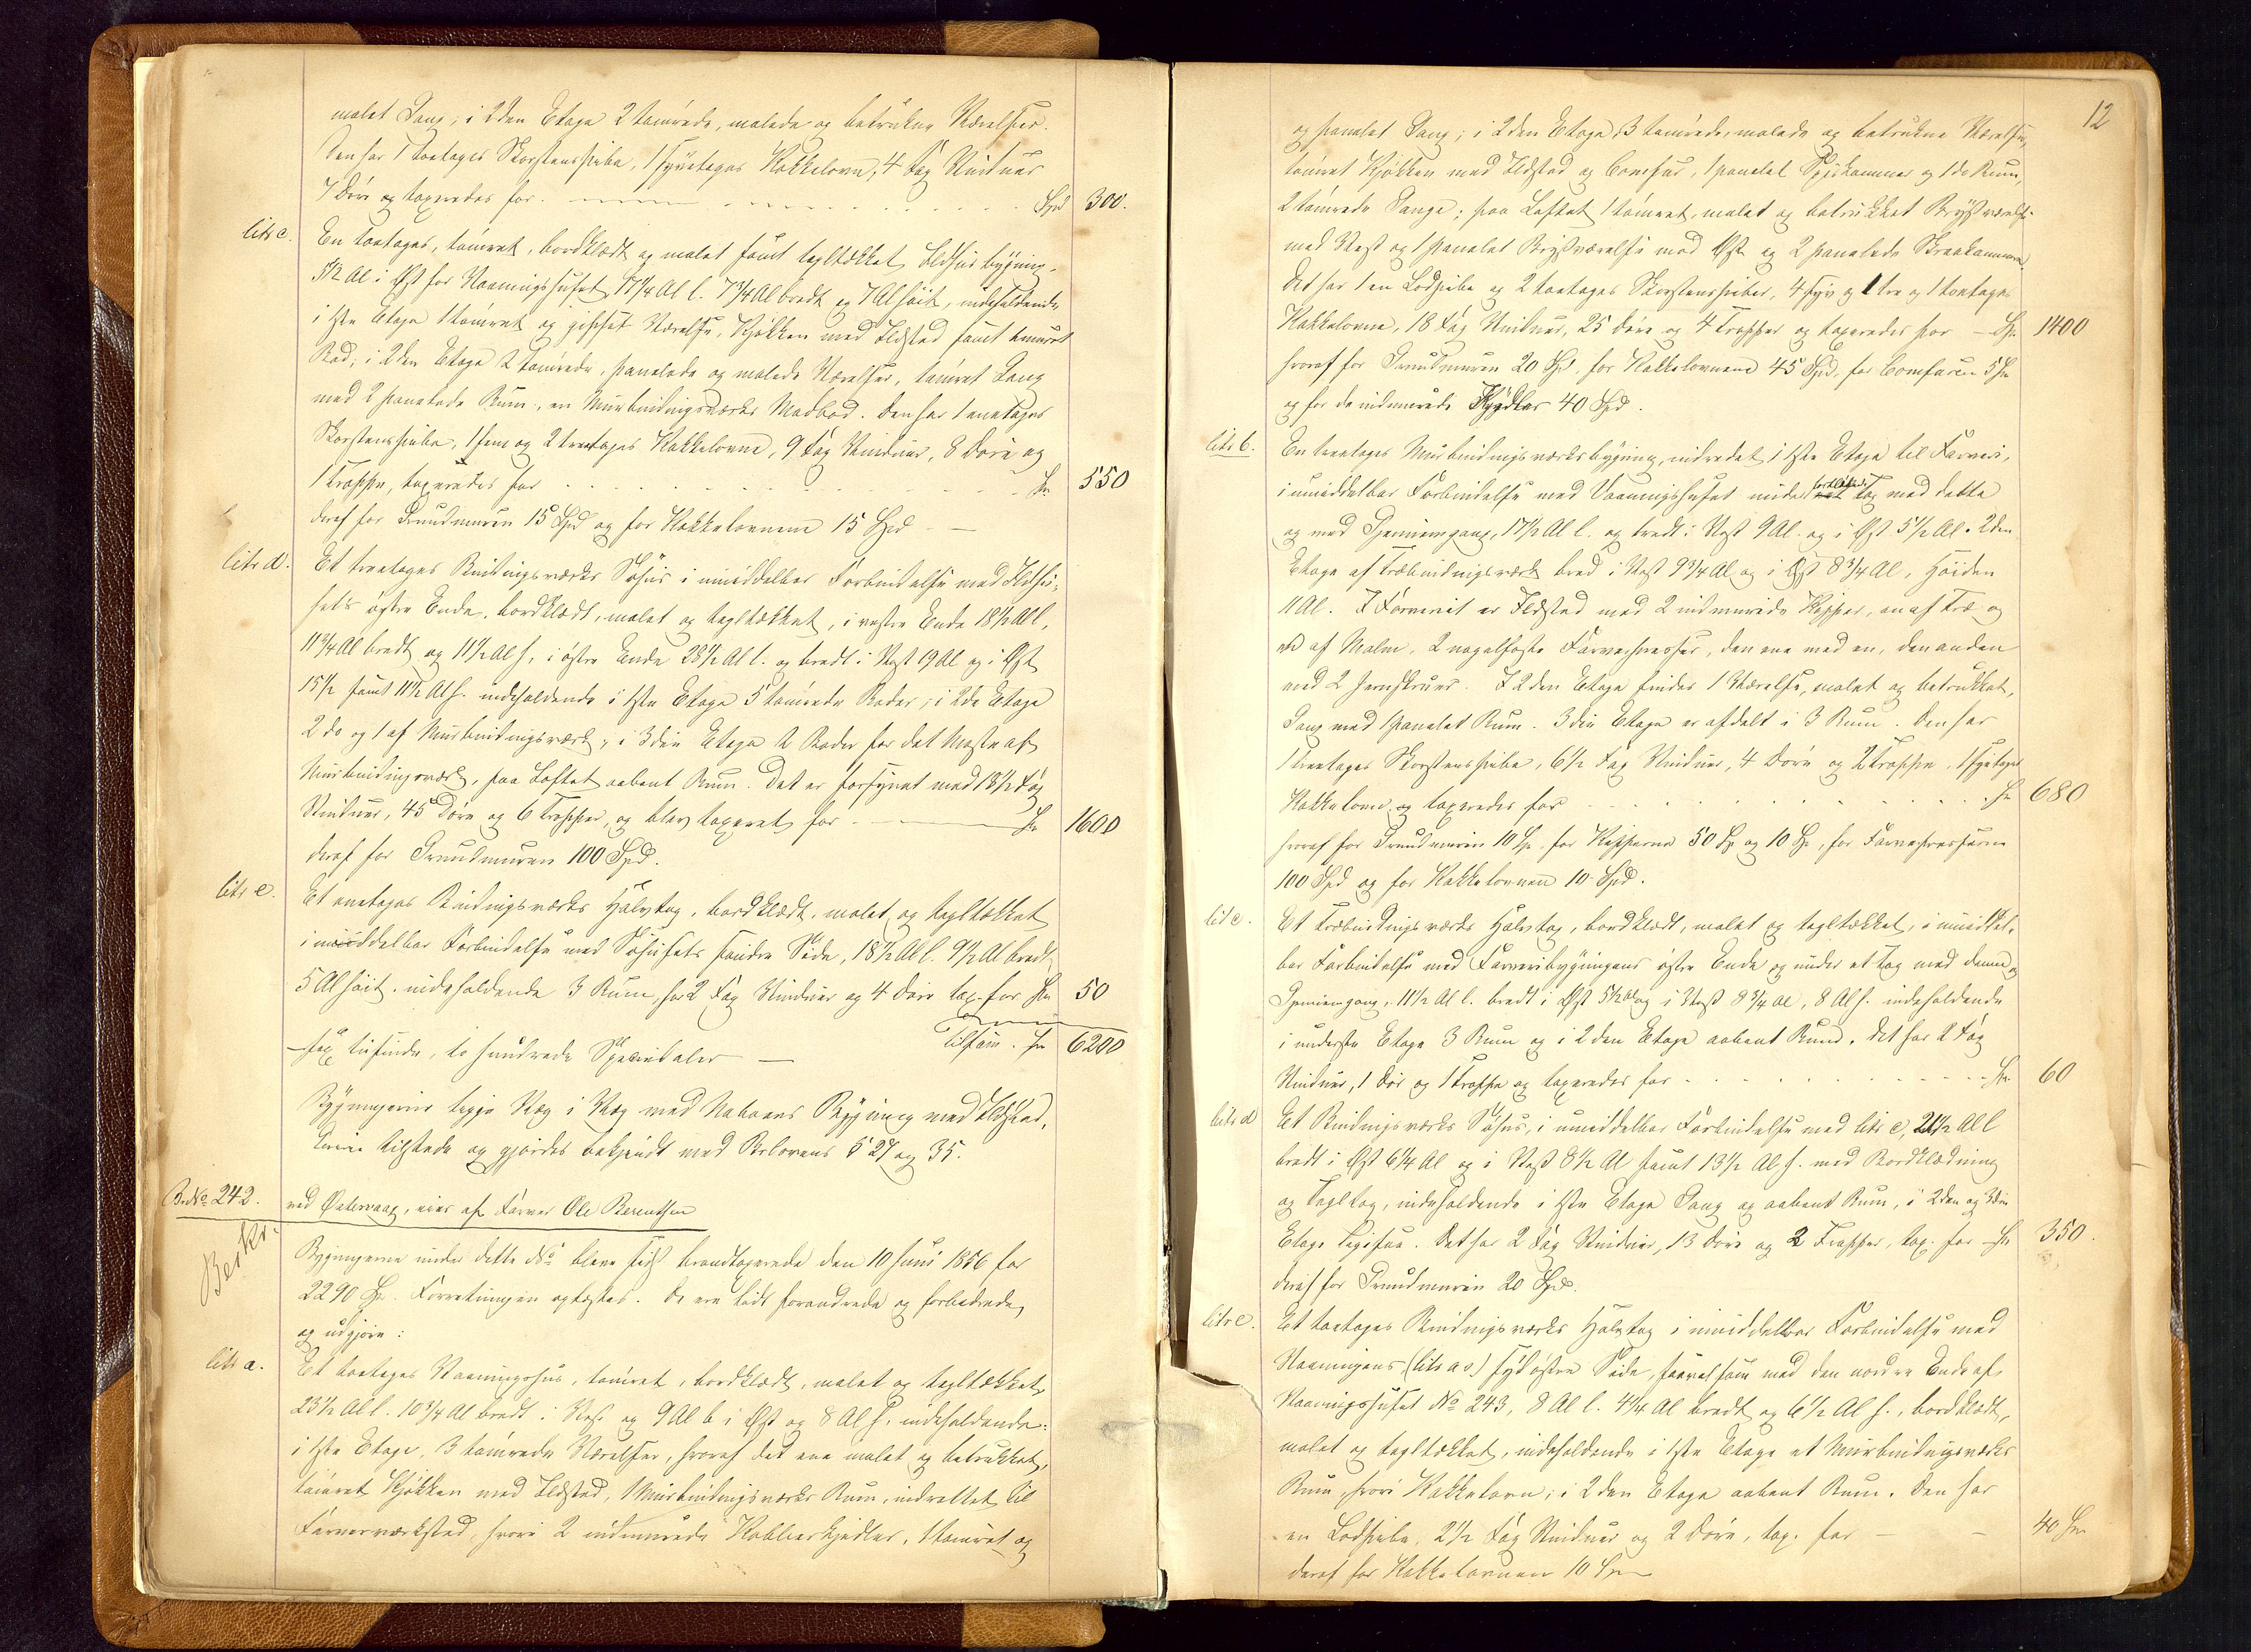 malet Gang; i 2den Etage 2 tømrede, malede og betrukne Værelser.
Den har 1 toetages Skorstenspibe, 1 fyretages Kakkelovn, 4 Fag Vinduer
7 Døre og taxeredes for Spd 300.
litr c. En toetages, tømret, bordklædt og malet samt tegltækket Ildhusbygning
5½ Al i Øst for Vaaningshuset 17¼ Al l. 7¾ Al bredt og 7 Al høit, indeholdende
i 1ste Etage 1 tømret og gipset Værelse, Kjøkken med Ildsted samt tømret
Bod; i 2den Etage 2 tømrede, panelede og malede Værelser, tømret Gang
med 2 panelede Rum, en Murbindingsværks Madbod. Den har 1 enetages
Skorstenspibe, 1 fem og 2 treetages Kakkelovne, 9 Fag Vinduer, 8 Døre og
1 Trappe, taxeredes for Sp. 550
deraf for Grundmuren 15 Spd og for Kakkelovnene 15 Spd
litr d. Et treetages Bindingsværks Søhus i umiddelbar Forbindelse med Ildhu-
sets østre Ende, bordklædt, malet og tegltækket, i vestre Ende 18½ Al l,
11¾ Al bredt og 11½ Al h, i østre Ende 28½ Al l. og bredt i Vest 19 Al og i Øst
15½ samt 11½ Al h. indeholdende i 1ste Etage 5 tømrede Boder; i 2de Etage
2 do og 1 af Murbindingsværk; i 3die Etage 2 Boder for det Meste af
Murbindingsværk, paa Loftet aabent Rum. Det er forsynet med 18½ Fag
Vinduer, 45 Døre og 6 Trapper, og blev taxeret for Sp. 1600
deraf for Grundmuren 100 Spd.
litr e. Et enetages Bindingsværks Halvtag, bordklædt, malet og tegltækket
i umiddelbar Forbindelse med Søhusets søndre Side, 18½ Al l. 9½ Al bredt
5 Al høit. indeholdende 3 Rum, har 2 Fag Vinduer og 4 Døre tax. for Sp. 50
— sex tusinde, to hundrede Speciedaler — Tilsam. Sp 6200
Bygningerne ligge Væg i Væg med Naboens Bygning med Ildsted.
Eieren tilstede og gjordes bekjendt med Brlovens § 27 og 35.
Br.No 242. ved Østervaag, eies af Farver Ole Berentsen
Beskr.
Bygningerne under dette No bleve sidst brandtaxerede den 10 Juni 1856 for
2290 Sp. Forretningen oplæstes. De ere tildels forandrede og forbedrede,
og udgjøre:
litr a. Et toetages Vaaningshus, tømret, bordklædt, malet og tegltækket,
23½ Al l. 10¾ Al bredt i Vest og 9 Al b i Øst og 8 Al h. indeholdende:
i 1ste Etage, 3 tømrede Værelser, hvoraf det ene malet og betrukket,
tømret Kjøkken med Ildsted, 1 Murbindingsværks Rum, indrettet til
Farverværksted, hvori 2 indmurede Kobberkjedler, 1 tømret og
12
og panelet Gang; i 2den Etage 3 tømrede, malede og betrukne Værelser,
tømret Kjøkken med Ildsted og Comfur, 1 panelet Spisekammer og 1 do Rum,
2 tømrede Gange; paa Loftet 1 tømret, malet og betrukket Brystværelse
mod Vest og 1 panelet Brystværelse mod Øst og 2 panelede Skraakammere.
Det har 1 en Lodpibe og 2 toetages Skorstenspiber, 4 fyr og 1 tre og 1 toetages
Kakkelovne, 18 Fag Vinduer, 25 Døre og 4 Trapper og taxeredes for — Sp. 1400
hvoraf for Grundmuren 20 Spd, for Kakkelovnene 45 Spd, for Comfuren 5 Sp
og for de indmurede Kjedler 40 Spd.
litr b. En treetages Murbindingsværksbygning, indredet i 1ste Etage til Farveri,
i umiddelbar Forbindelse med Vaaningshuset under fortløbende Tag med dette
og med Gjennemgang, 17½ Al l. og bredt i Vest 9 Al. og i Øst 5½ Al. 2den
Etage af Træbindingsværk bred i Vest 9¾ Al og i Øst 8¾ Al, Høiden
11 Al. I Farveriet er Ildsted med 2 indmurede Kypper, en af Træ og
en af Malm, 2 nagelfaste Farvepresser, den ene med en, den anden
med 2 Jernskruer. I 2den Etage findes 1 Værelse, malet og betrukket,
Gang med 1 panelet Rum. 3die Etage er afdelt i 3 Rum. Den har
1 treetages Skorstenspibe, 6½ Fag Vinduer, 4 Døre og 2 Trapper, 1 fyretages
Kakkelovn og taxeredes for Sp 680
hvoraf for Grundmuren 10 Sp, for Kypperne 50 Sp og 10 Sp, for Farvepresserne
100 Spd og for Kakkelovnen 10 Spd.
lit c. Et Træbindingsværks Halvtag, bordklædt, malet og tegltækket, i umiddel-
bar Forbindelse med Farveribygningens østre Ende og under et Tag med denne og
Gjennemgang, 11½ Al l. bredt i Øst 5½ Al og i Vest 8¾ Al, 8 Al h. indeholdende
i underste Etage 3 Rum og i 2den Etage aabent Rum. Det har 2 Fag
Vinduer, 1 Dør og 1 Trappe og taxeredes for Sp. 60
litr d Et Bindingsværks Søhus, i umiddelbar Forbindelse med litr c, 21½ Al l
bredt i Øst 6¼ Al og i Vest 8½ Al samt 13½ Al h. med Bordklædning
og Tegltag, indeholdende i 1ste Etage Gang og aabent Rum, i 2den og 3die
Etage ligesaa. Det har 2 Fag Vinduer, 13 Døre og 2 Trapper, tax. for Sp 350.
deraf for Grundmuren 20 Spd.
litr e. Et toetages Bindingsværks Halvtag i umiddelbar Forbindelse med
Vaaningens (litr a) sydøstre Side, saavelsom med den nordre Ende af
Vaaningshuset No 243, 8 Al l. 4¼ Al bredt og 6½ Al h., bordklædt,
malet og tegltækket, indeholdende i 1ste Etage et Murbindingsværks
Rum, hvori Kakkelovn; i 2den Etage aabent Rum. Den har
en Lodpibe, 2½ Fag Vinduer og 2 Døre, tax. for — 40 Sp.
deraf for Kakkelovnen 10 Sp.